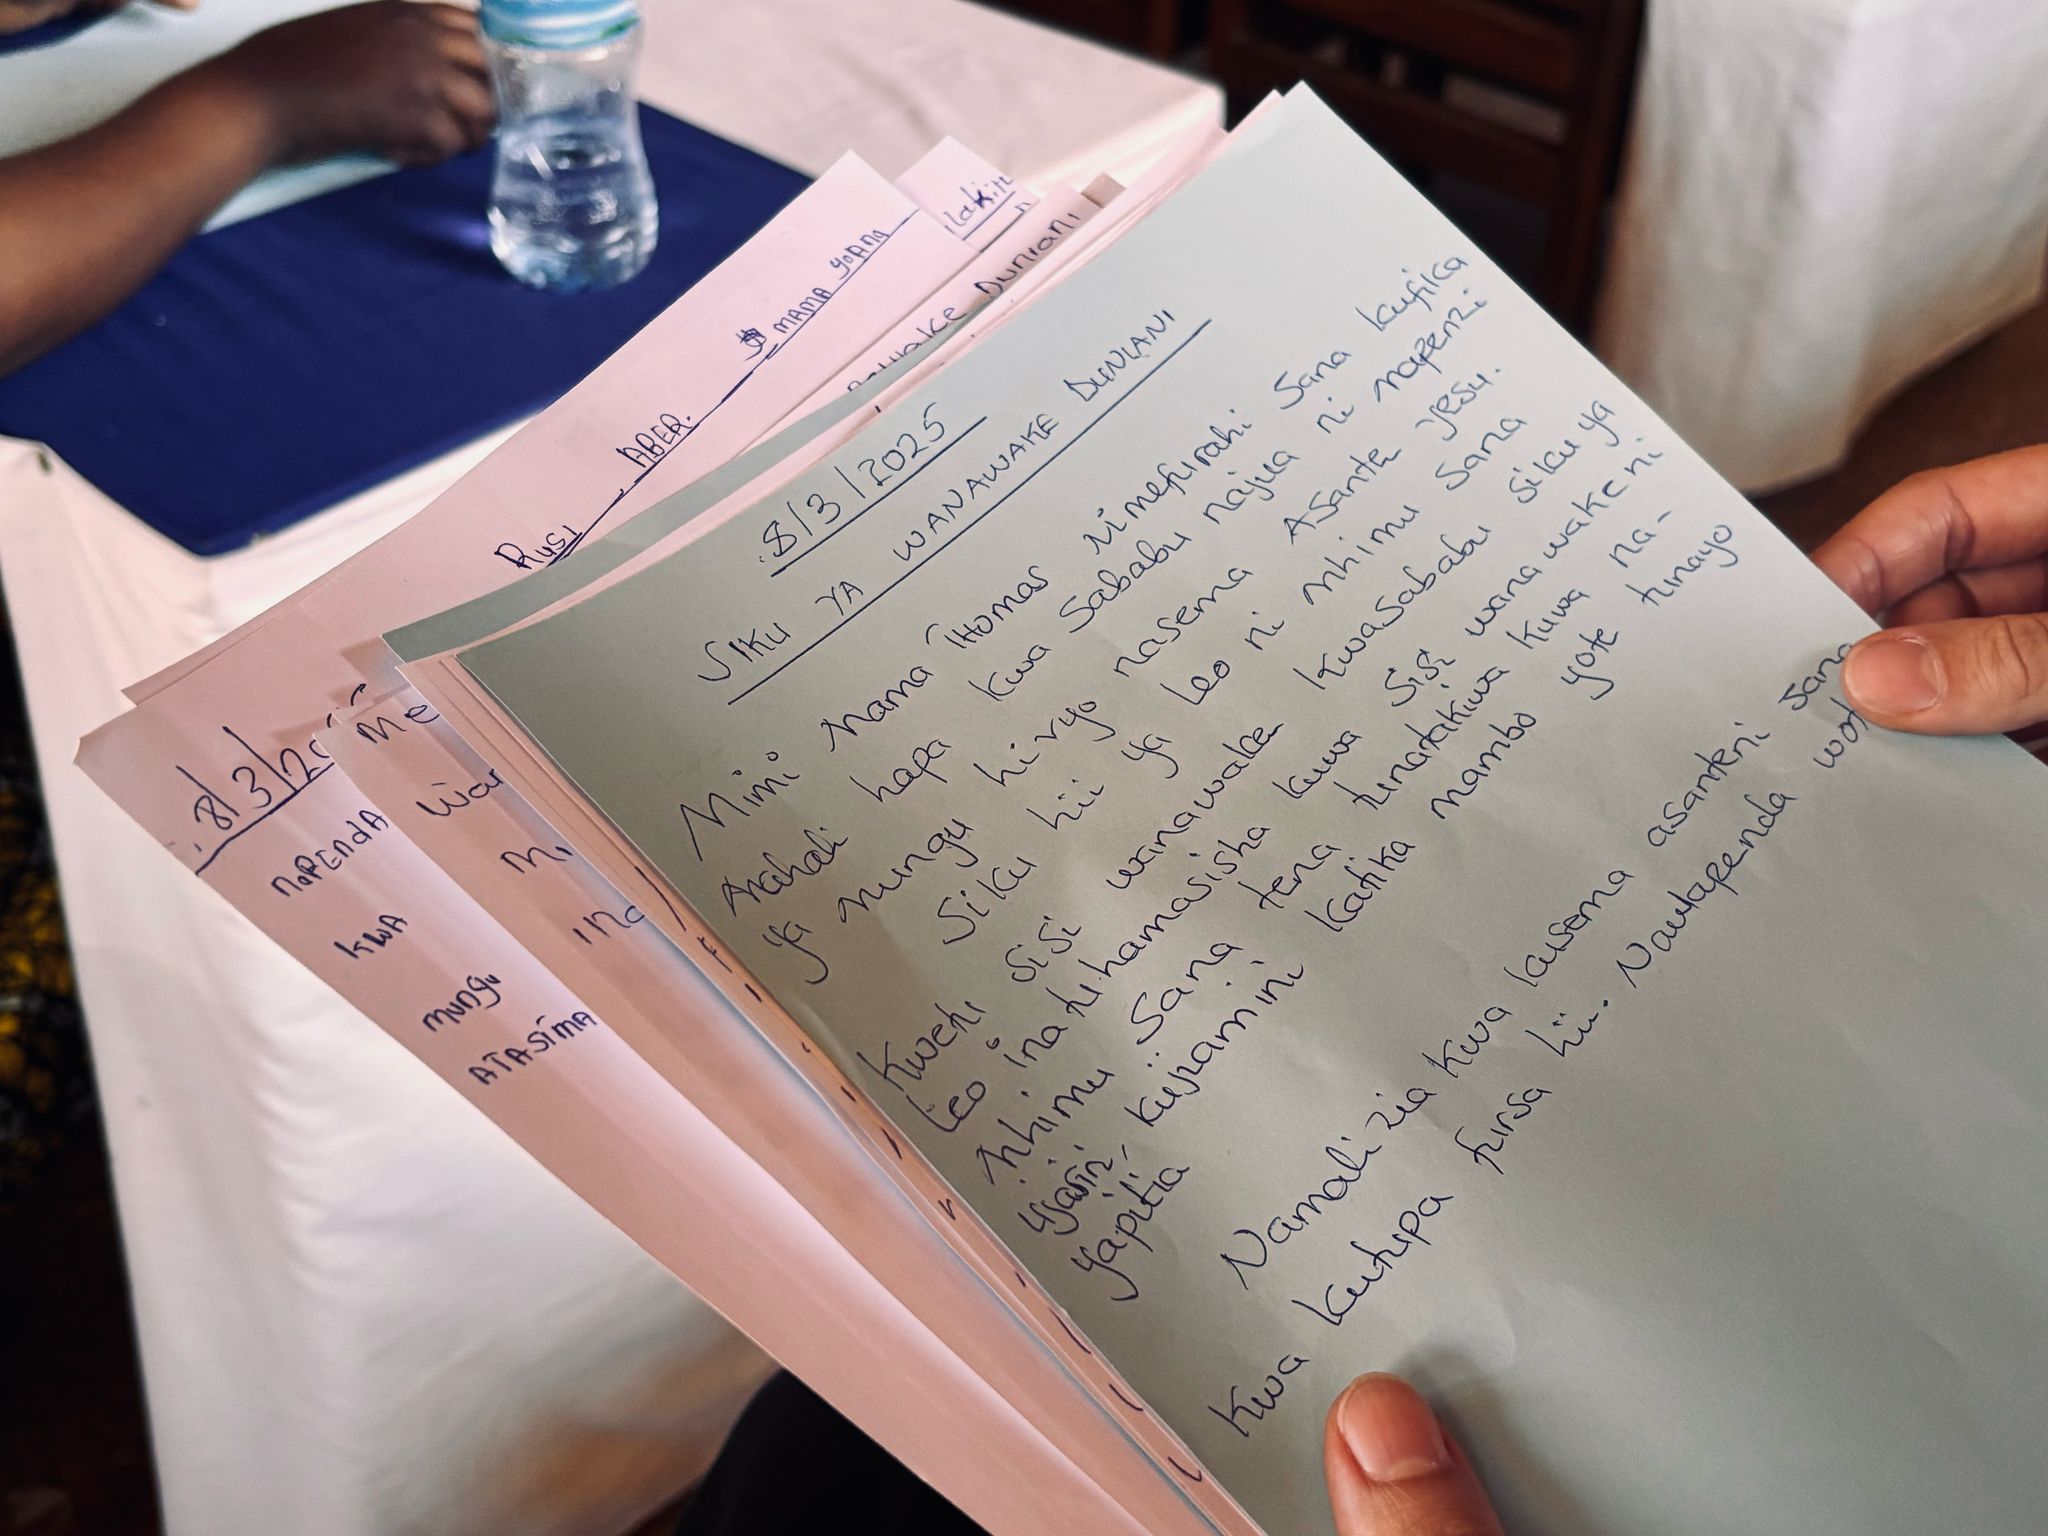 8/3/2025
SIKU YA WANAWAKE DUNIANI
Mimi Mama Thomas Nimefurahi Sana kufika
Mahali hapa kwa Sababu najua ni mapenzi
ya mungu hivyo nasema Asante Yesu.
Siku hii ya leo ni mhimu sana
Kwetu sisi wanawake kwasababu siku ya
leo inatuhamasisha kuwa sisi wanawake ni
mhimu sana tena tunatakiwa kuwa na-
kujiamini katika mambo yote tunayo
yapitia
Namalizia kwa kusema asanteni sana
Kwa kutupa fursa hii. Nawapenda
RUSI ABER. MAMA YOANA
Duniani
8/3/20
NAPENDA
KWA
MUNGU
ATASIMA
Me
War